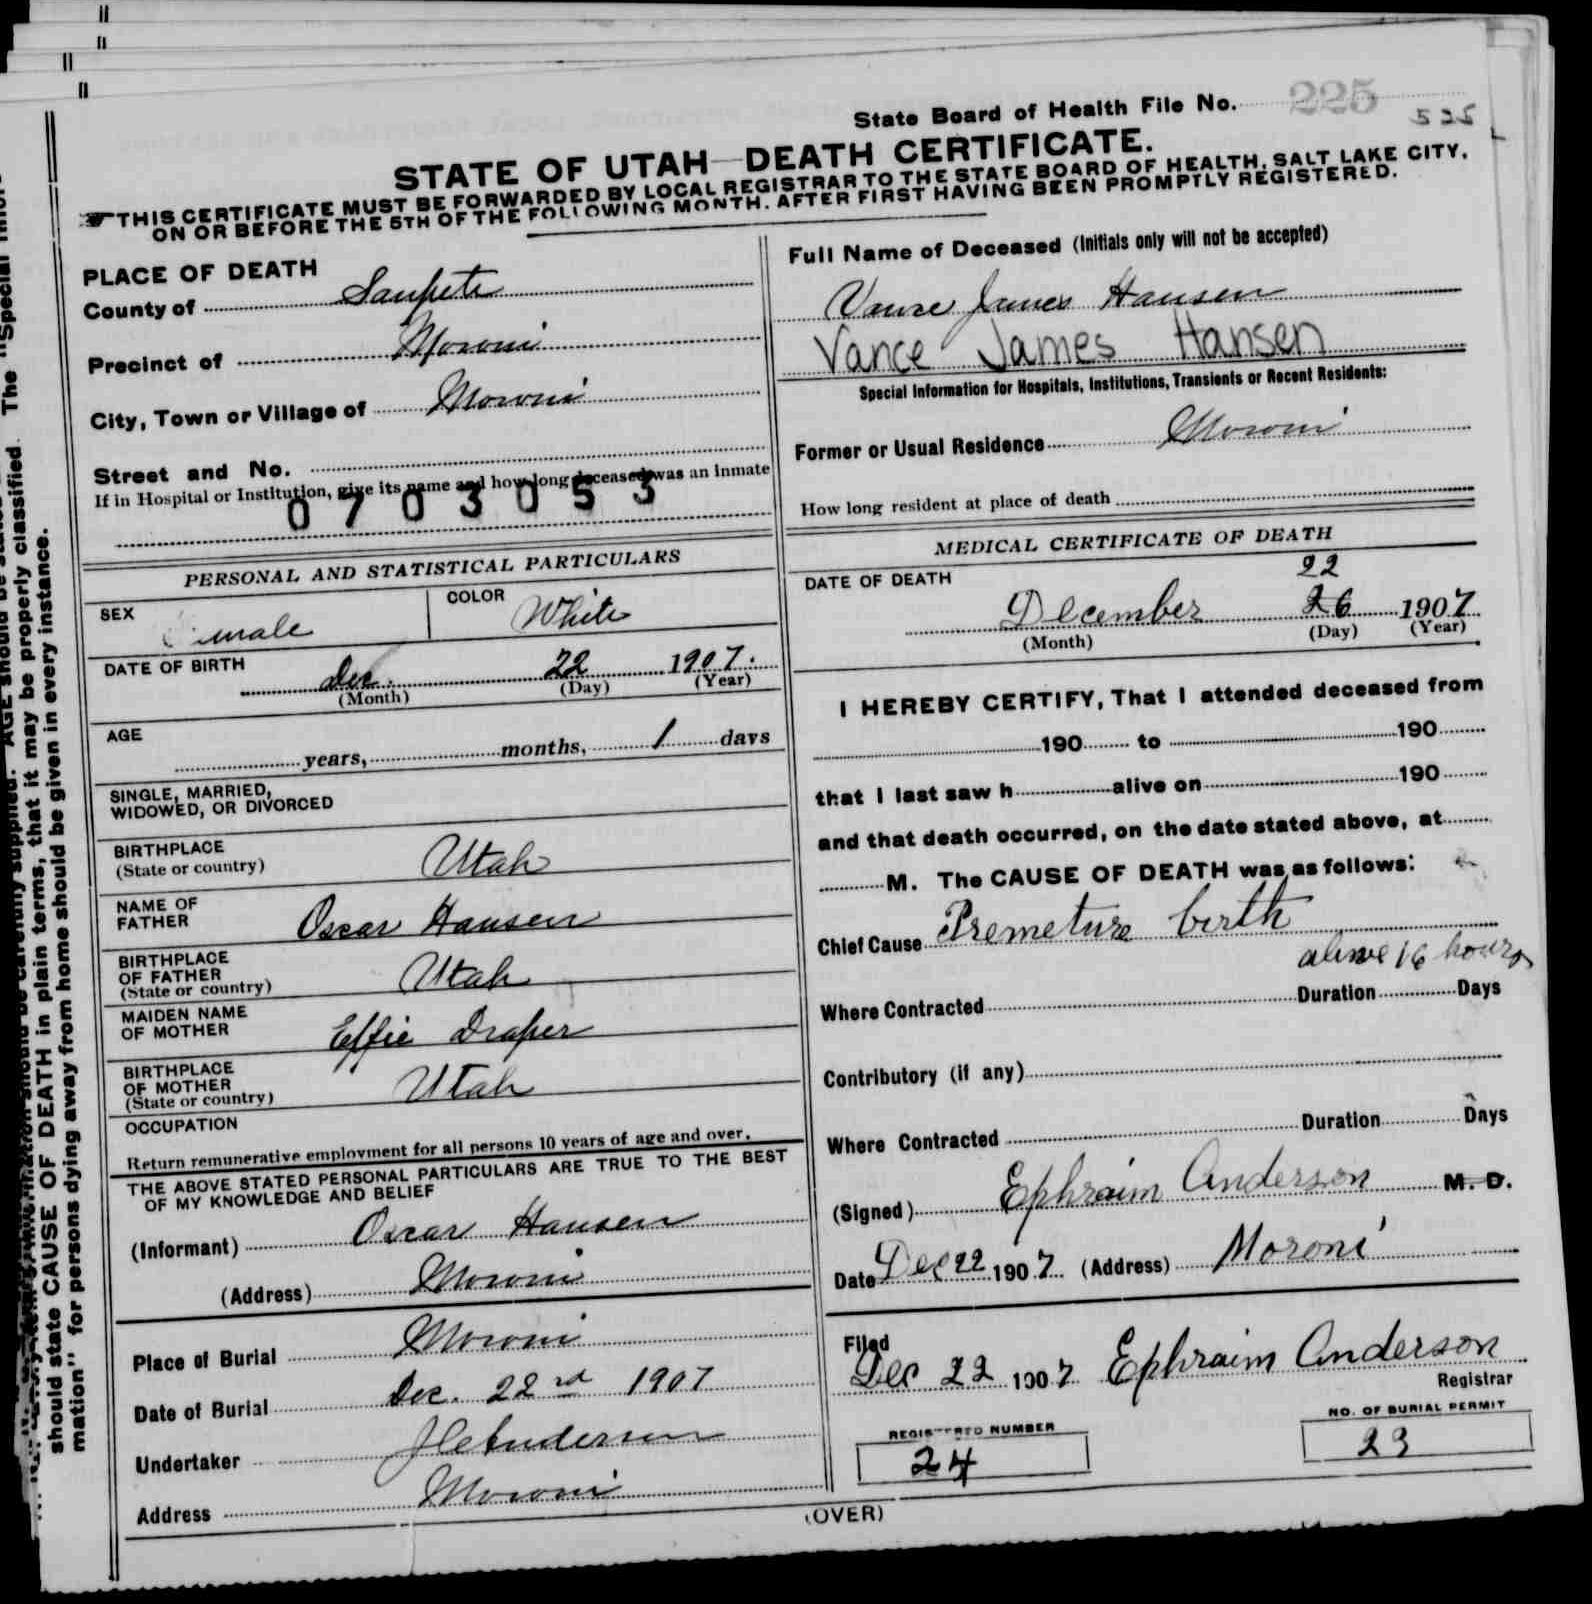 State Board of Health File No. 225
525
STATE OF UTAH—DEATH CERTIFICATE.
THIS CERTIFICATE MUST BE FORWARDED BY LOCAL REGISTRAR TO THE STATE BOARD OF HEALTH, SALT LAKE CITY,
ON OR BEFORE THE 5TH OF THE FOLLOWING MONTH, AFTER FIRST HAVING BEEN PROMPTLY REGISTERED.
PLACE OF DEATH
County of Sanpete
Precinct of Moroni
City, Town or Village of Moroni
Street and No.
If in Hospital or Institution, give its name and how long deceased was an inmate
0703053
PERSONAL AND STATISTICAL PARTICULARS
SEX male
COLOR White
DATE OF BIRTH Dec. 22 1907.
(Month) (Day) (Year)
AGE
years, months, 1 days
SINGLE, MARRIED,
WIDOWED, OR DIVORCED
BIRTHPLACE
(State or country) Utah
NAME OF
FATHER Oscar Hansen
BIRTHPLACE
OF FATHER
(State or country) Utah
MAIDEN NAME
OF MOTHER Effie Draper
BIRTHPLACE
OF MOTHER
(State or country) Utah
OCCUPATION
Return remunerative employment for all persons 10 years of age and over.
THE ABOVE STATED PERSONAL PARTICULARS ARE TRUE TO THE BEST
OF MY KNOWLEDGE AND BELIEF
(Informant) Oscar Hansen
(Address) Moroni
Place of Burial Moroni
Date of Burial Dec. 22nd 1907
Undertaker Anderson
Address Moroni
Full Name of Deceased (Initials only will not be accepted)
Vance James Hansen
Vance James Hansen
Special Information for Hospitals, Institutions, Transients or Recent Residents:
Former or Usual Residence Moroni
How long resident at place of death
MEDICAL CERTIFICATE OF DEATH
DATE OF DEATH 22
December 26 1907
(Month) (Day) (Year)
I HEREBY CERTIFY, That I attended deceased from
190 to 190
that I last saw h alive on 190
and that death occurred, on the date stated above, at
M. The CAUSE OF DEATH was as follows:
Chief Cause Premeture birth
alive 16 hours
Where Contracted Duration Days
Contributory (if any)
Where Contracted Duration Days
(Signed) Ephraim Anderson M. D.
Date Dec 22 1907 (Address) Moroni
Filed
Dec 22 1907 Ephraim Anderson
Registrar
REGISTERED NUMBER
24
NO. OF BURIAL PERMIT
23
(OVER)
should state CAUSE OF DEATH in plain terms, that it may be properly classified. The "Special
mation" for persons dying away from home should be given in every instance.